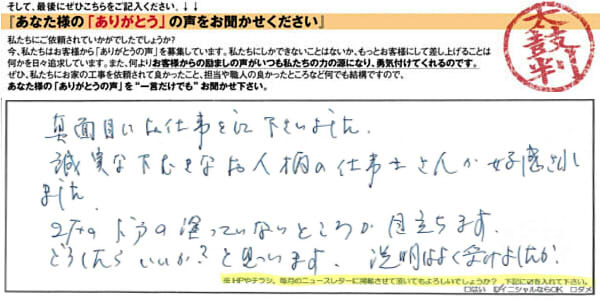 そして、最後にぜひこちらをご記入ください。↓↓
『あなた様の「ありがとう」の声をお聞かせください』
私たちにご依頼されていかがでしたでしょうか?
今、私たちはお客様から「ありがとうの声」を募集しています。私たちにしかできないことはないか、もっとお客様にして差し上げることは
何かを日々追求しています。また、何よりお客様からの励ましの声がいつも私たちの力の源になり、勇気付けてくれるのです。
ぜひ、私たちにお家の工事を依頼されて良かったこと、担当や職人の良かったところなど何でも結構ですので、
あなた様の「ありがとうの声」を“一言だけでも”お聞かせ下さい。
太鼓判
真面目にお仕事を 下さいました。
誠実な 人柄の仕事士さんが好感
ました
2Fのドアの塗っていないところが目立ちます。
どうしたらいいか?と思います。説明はよく受けましたが。
※HPやチラシ、毎月のニュースレターに掲載させて頂いてもよろしいでしょうか? 下記に☑を入れて下さい。
□はい ☑イニシャルならOK □ダメ